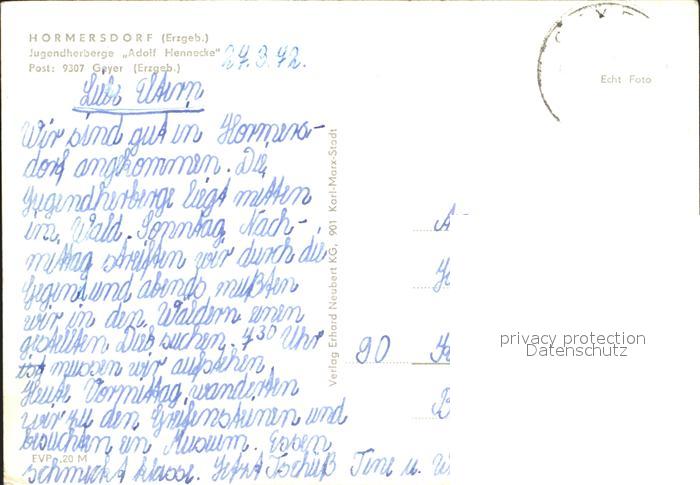 HORMERSDORF (Erzgeb.)
Jugendherberge „Adolf Hennecke"
Post: 9307 Geyer (Erzgeb.)
27.3.72.
Echt Foto
Liebe Eltern
Wir sind gut in Hormers-
dorf angekommen. Die
Jugendherberge liegt mitten
im Wald. Sonntag Nach-
mittag streiften wir durch die
Gegend und abends mußten
wir in den Wäldern einen
gestellten Dieb suchen. 7 30 Uhr
müssen wir aufstehen.
Heute Vormittag wanderten
wir zu den Greifensteinen und
besuchten ein Museum. Essen
schmeckt klasse. Jetzt Tschüß Tine u.
EVP -.20 M
Verlag Erhard Neubert KG, 901 Karl-Marx-Stadt
90
privacy protection
Datenschutz